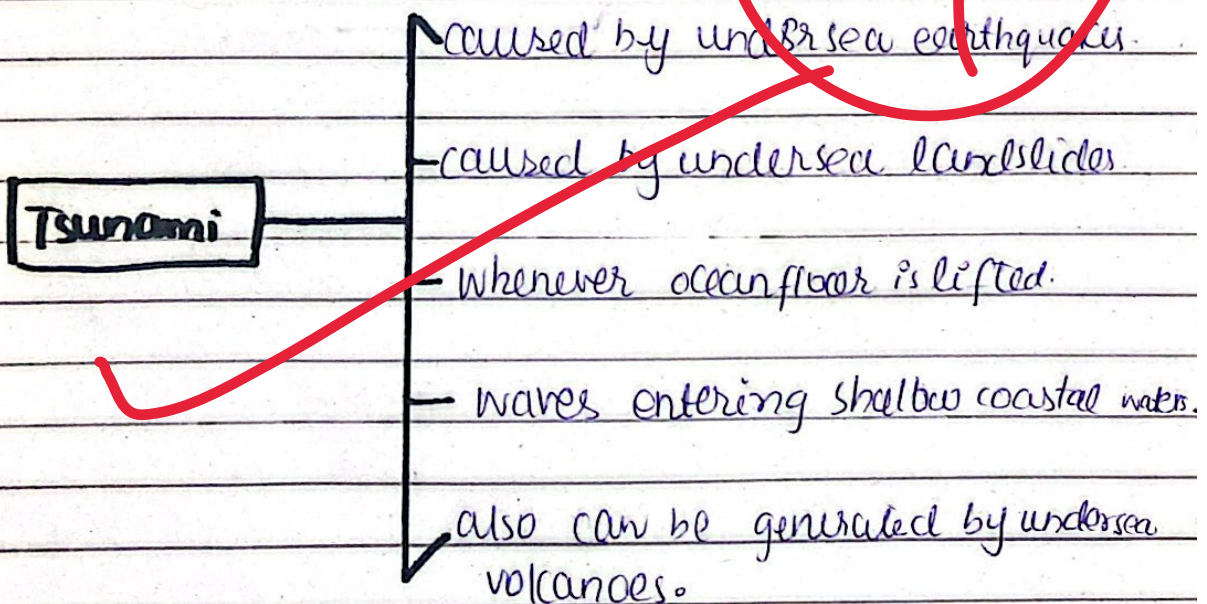 caused by undersea earthquakes.
caused by undersea landslides.
Tsunami
whenever ocean floor is lifted.
waves entering shallow coastal waters.
also can be generated by undersea
volcanoes.